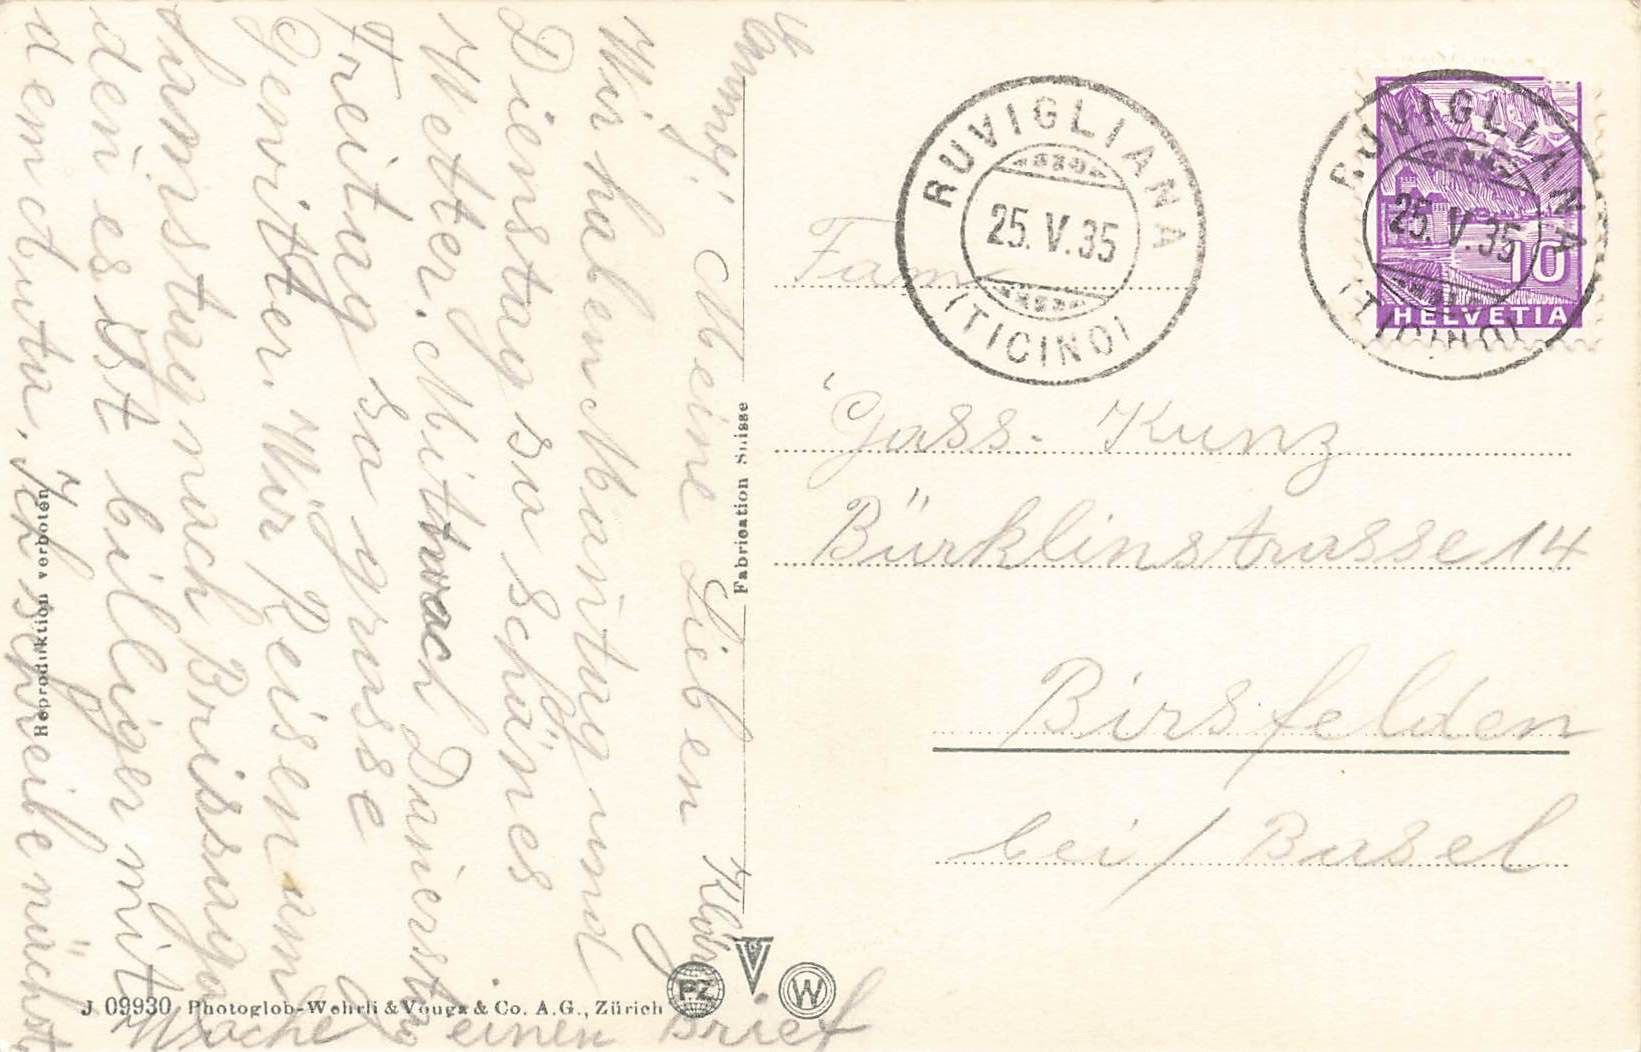 Meine Lieben
Wir haben Mantag und
Dienstag so schönes
Wetter. Mittwach Danerstag
Freitag so grosse
Gewitter. Wir Reisen am
Samstag nach Brissago
dem es ist billiger mit
dem Auto. Ich schreibe nächste
Wache einen Brief
RUVIGLIANA
25. V. 35
(TICINO)
RUVIGLIANA
25. V. 35
(TICINO)
10
HELVETIA
Fam
Gass. Kunz
Bürklinstrasse 14
Birsfelden
bei/ Basel
Fabrication Suisse
Reproduktion verboten
J 09930 Photoglob-Wehrli & Vouga & Co. A.G., Zürich
PZ
V
W